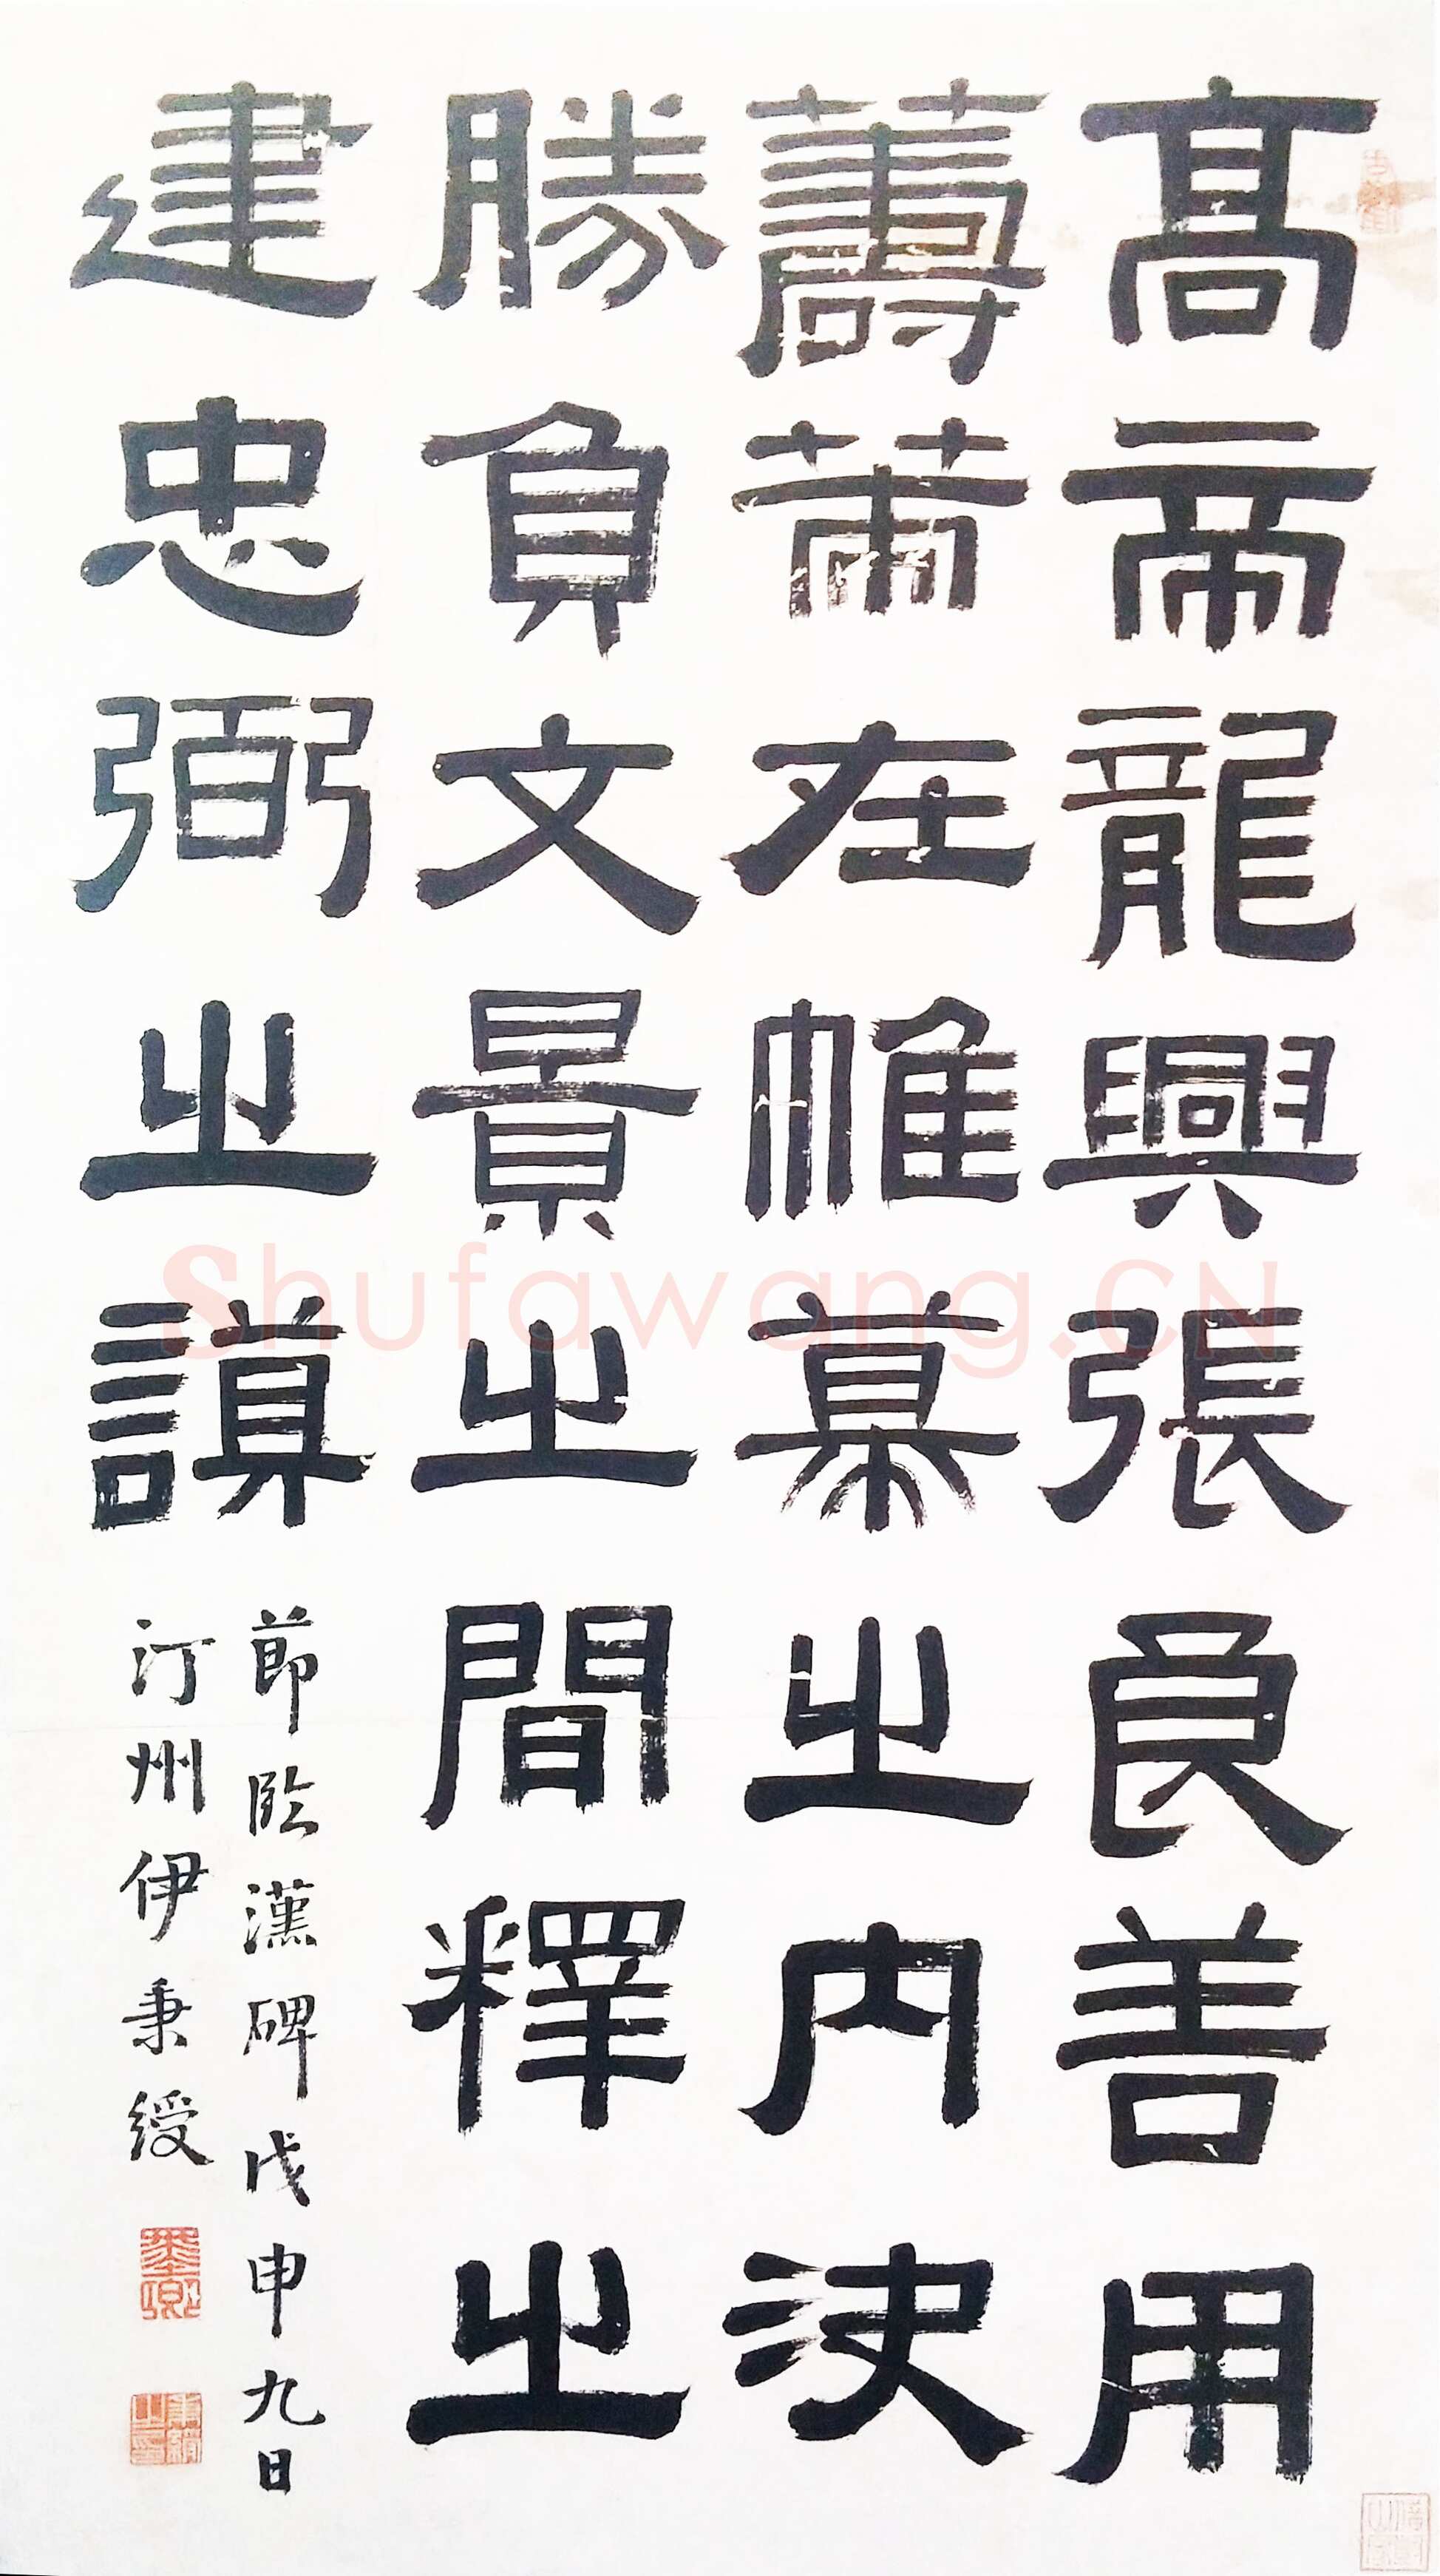 高帝龍興張良善用
籌策在帷幕之内決
勝負文景之間釋之
建忠弼之謨
節臨漢碑戊申九日
汀州伊秉綬
墨卿
Shufawang.CN